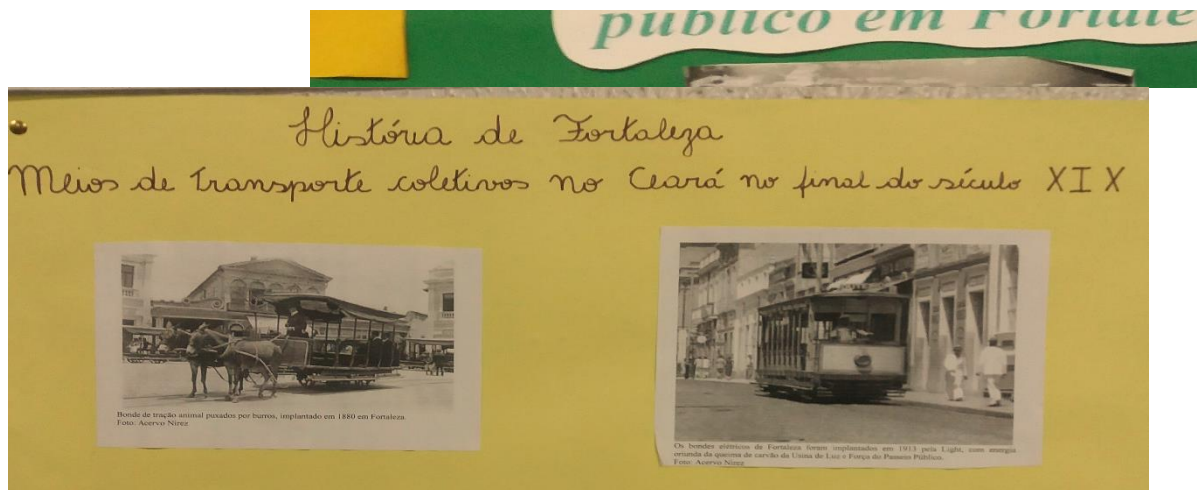 público em Fortale
História de Fortaleza
Meios de Transporte coletivos no Ceará no final do século XIX
Bonde de tração animal puxados por burros, implantado em 1880 em Fortaleza
Foto: Acervo Nirez
Os bondes elétricos de Fortaleza foram implantados em 1913 pela Light, com energia
oriunda da queima de carvão da Usina de Luz e Força do Passeio Público.
Foto: Acervo Nirez